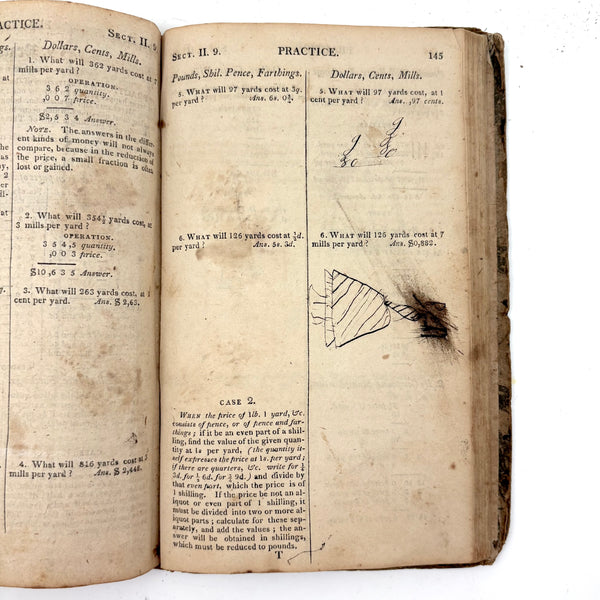 ACTICE.
SECT. II. 9
gs.
Dollars, Cents, Mills.
1. What will 362 yards cost at 7
mills per yard?
OPERATION.
3 6 2 quantity.
,0 0 7 price.
$2,5 3 4 Answer.
NOTE. The answers in the differ-
ent kinds of money will not always
compare, because in the reduction of
the price, a small fraction is often
lost or gained.
2. What will 354½ yards cost, at
3 mills per yard?
OPERATION.
3 5 4 ,5 quantity.
,0 0 3 price.
$10,6 3 5 Answer.
3. What will 263 yards cost, at 1
cent per yard. Ans. $ 2,63.
4. What will 816 yards cost at
mills per yard? Ans. $ 2,448.
SECT. II. 9. PRACTICE. 145
Pounds, Shil. Pence, Farthings.
5. WHAT will 97 yards cost at 3q.
per yard? Ans. 6s. 0¾.
6. WHAT will 126 yards cost at ½d.
per yard? Ans. 5s. 3d.
CASE 2.
WHEN the price of 1lb. 1 yard, &c.
consists of pence, or of pence and far-
things; if it be an even part of a shil-
ling, find the value of the given quan-
tity at 1s per yard, (the quantity it-
self expresses the price at 1s. per yard;
if there are quarters, &c. write for ¼
3d. for ½ 6d. for ¾ 9d.) and divide by
that even part, which the price is of
1 shilling. If the price be not an al-
iquot or even part of 1 shilling, it
must be divided into two or more al-
iquot parts; calculate for these sep-
arately, and add the values; the an-
swer will be obtained in shillings,
which must be reduced to pounds.
T
Dollars, Cents, Mills.
5. WHAT will 97 yards cost, at 1
cent per yard? Ans. ,97 cents.
6. WHAT will 126 yards cost at 7
mills per yard? Ans. $0,882.